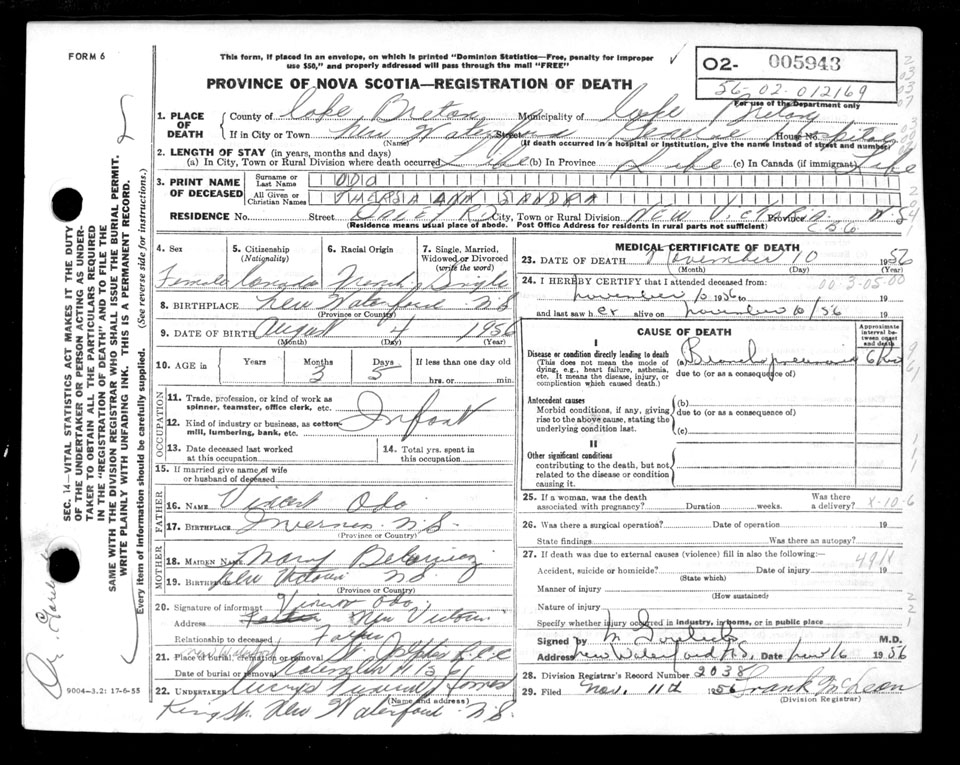 FORM 6
This form, if placed in an envelope, on which is printed "Dominion Statistics—Free, penalty for improper
use $50," and properly addressed will pass through the mail "FREE"
O2- 005943
56-02-012169
For use of the Department only
PROVINCE OF NOVA SCOTIA—REGISTRATION OF DEATH
1. PLACE OF DEATH
County of Cape Breton Municipality of Cape Breton
If in City or Town New Waterford Street General Hospital House No.
(Name) (If death occurred in a hospital or institution, give the name instead of street and number)
2. LENGTH OF STAY (in years, months and days)
(a) In City, Town or Rural Division where death occurred Life (b) In Province Life (c) In Canada (if immigrant) Life
3. PRINT NAME OF DECEASED
Surname or Last Name ODO
All Given or Christian Names ANN SANDRA
RESIDENCE No. Street City, Town or Rural Division NEW VICTORIA Province N.S.
(Residence means usual place of abode. Post Office Address for residents in rural parts not sufficient)
4. Sex
Female
5. Citizenship
(Nationality)
Canada
6. Racial Origin
French
7. Single, Married,
Widowed or Divorced
(write the word)
Single
8. BIRTHPLACE New Waterford N.S
(Province or Country)
9. DATE OF BIRTH August 4 1956
(Month) (Day) (Year)
10. AGE in Years Months Days If less than one day old
3 5 hrs. or min.
OCCUPATION
11. Trade, profession, or kind of work as
spinner, teamster, office clerk, etc.
Infant
12. Kind of industry or business, as cotton-
mill, lumbering, bank, etc.
13. Date deceased last worked
at this occupation
14. Total yrs. spent in
this occupation
15. If married give name of wife
or husband of deceased
FATHER
16. NAME Vincent Odo
17. BIRTHPLACE Inverness N.S.
(Province or Country)
MOTHER
18. MAIDEN NAME Mary
19. BIRTHPLACE New Victoria N.S.
(Province or Country)
20. Signature of informant Vincent Odo
Address New Victoria
Relationship to deceased Father
21. Place of burial, cremation or removal New Waterford St.
Date of burial or removal
22. UNDERTAKER
(Name and address)
King St. New Waterford N.S.
MEDICAL CERTIFICATE OF DEATH
23. DATE OF DEATH November 10 1956
(Month) (Day) (Year)
24. I HEREBY CERTIFY that I attended deceased from:
00 3-05-00
november 10 1956 to 19
and last saw her alive on november 10/56 19
CAUSE OF DEATH
Approximate
interval be-
tween onset
and death
I
Disease or condition directly leading to death
(This does not mean the mode of
dying, e.g., heart failure, asthenia,
etc. It means the disease, injury, or
complication which caused death.)
(a) Bronchopneumonia
due to (or as a consequence of)
Antecedent causes
Morbid conditions, if any, giving
rise to the above cause, stating the
underlying condition last.
(b)
due to (or as a consequence of)
(c)
II
Other significant conditions
contributing to the death, but not
related to the disease or condition
causing it.
25. If a woman, was the death
associated with pregnancy? Duration weeks. Was there
a delivery?
X-10-6
26. Was there a surgical operation? Date of operation 19
State findings Was there an autopsy?
27. If death was due to external causes (violence) fill in also the following:—
491
Accident, suicide or homicide? Date of injury 19
(State which)
Manner of injury
(How sustained)
Nature of injury
Specify whether injury occurred in industry, in home, or in public place
Signed by M.D.
Address New Waterford N.S. Date Nov 16 1956
28. Division Registrar's Record Number 2038
29. Filed Nov. 11th 1956 Frank McLean
(Division Registrar)
SEC. 14—VITAL STATISTICS ACT MAKES IT THE DUTY
OF THE UNDERTAKER OR PERSON ACTING AS UNDER-
TAKER TO OBTAIN ALL THE PARTICULARS REQUIRED
IN THE "REGISTRATION OF DEATH" AND TO FILE THE
SAME WITH THE DIVISION REGISTRAR WHO SHALL ISSUE THE BURIAL PERMIT.
WRITE PLAINLY WITH UNFADING INK. THIS IS A PERMANENT RECORD.
Every item of information should be carefully supplied. (See reverse side for instructions.)
9004—3.2: 17-6-55